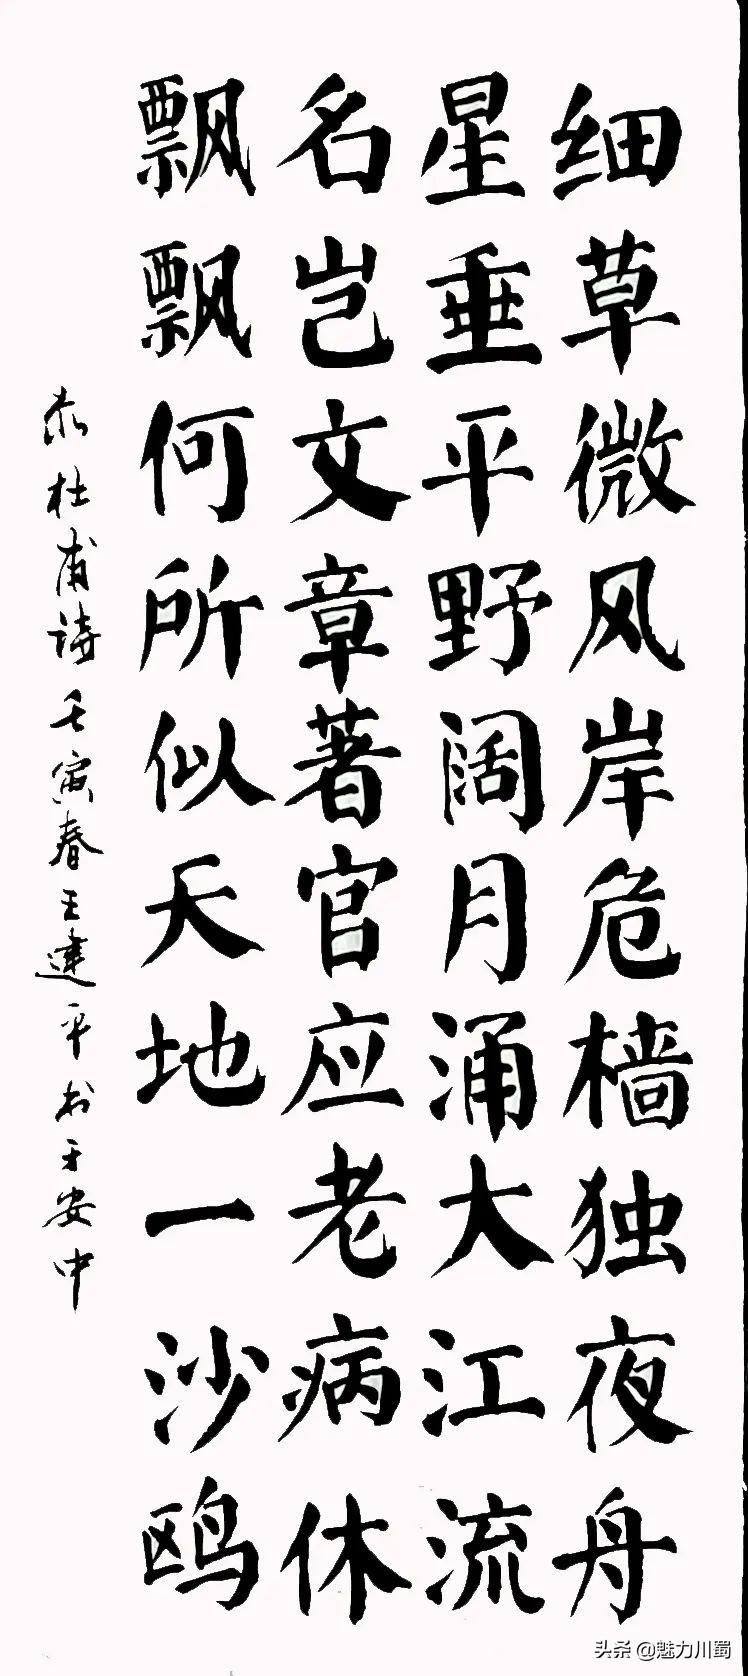 细草微风岸危樯独夜舟
星垂平野阔月涌大江流
名岂文章著官应老病休
飘飘何所似天地一沙鸥
录杜甫诗壬寅春王建平书于安中
头条 @魅力川蜀